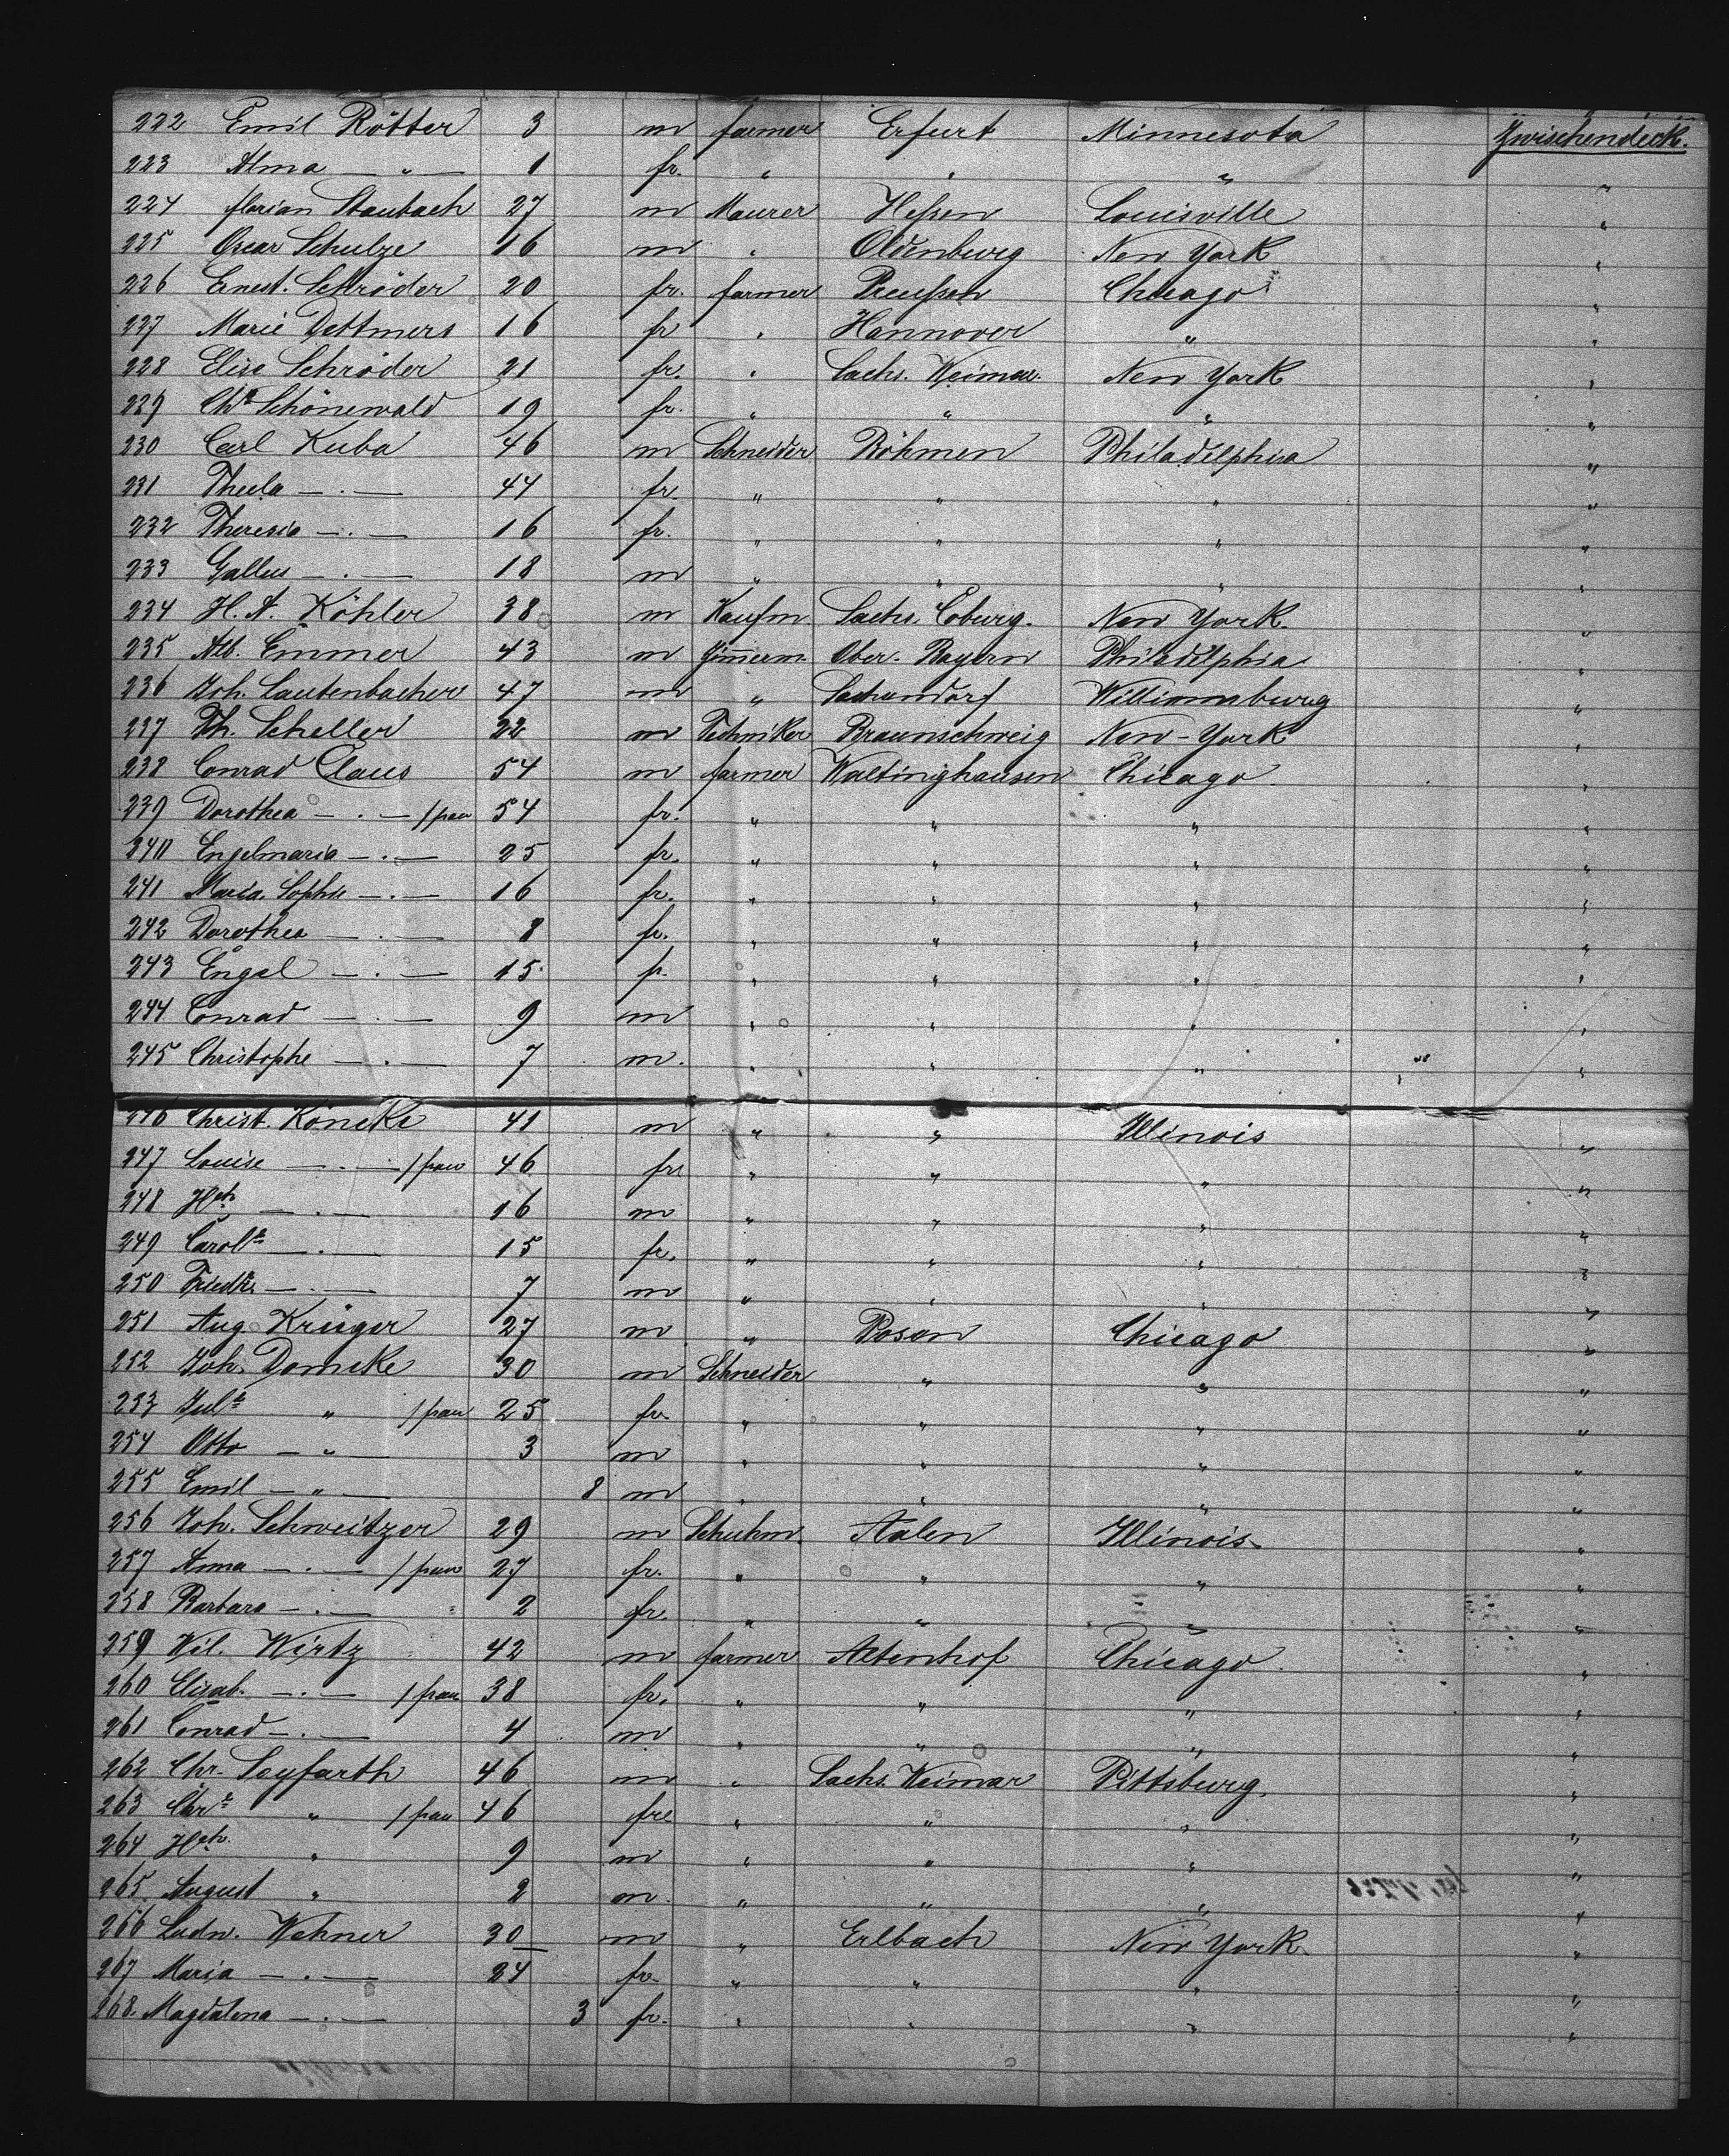 222 Emil Rötter 3 m farmer Erfurt Minnesota Zwischendeck.
223 Alma — " — 1 fr. " " " "
224 florian Staubach 27 m Maurer Hessen Louisville "
225 Oscar Schulze 16 m " Oldenburg New York "
226 Ernest. Schröder 20 fr. farmer Preussen Chicago "
227 Marie Dettmers 16 fr " Hannover " "
228 Elise Schröder 21 fr. " Sachs. Weimar. New York "
229 Chr Schönewald 19 fr. " " " "
230 Carl Kuba 46 m Schneider Böhmen Philadelphia "
231 Thecla — . — 44 fr. " " " "
232 Theresia — . — 16 fr. " " " "
233 Gallus — . — 18 m " " " "
234 H. A. Köhler 38 m Kaufm. Sachs. Coburg. New York. "
235 Alb. Emmer 43 m Zimerm. Ober. Bayern Philadelphia "
236 Joh. Lautenbacher 47 m " Williamsburg "
237 Th. Scheller 22 m Techniker Braunschweig New-York "
238 Conrad Claus 54 m farmer Waltringhausen Chicago "
239 Dorothea — . — / frau 54 fr. " " " "
240 Engelmaria — . — 25 fr. " " " "
241 Maria. Sophie — . — 16 fr. " " " "
242 Dorothea — . — 8 fr. " " " "
243 Engel — . — 15. fr. " " " "
244 Conrad — . — 9 m " " " "
245 Christophe — . — 7 m. " " " "
246 Christ. Köneke 41 m " " Illinois "
247 Louise — . — / frau 46 fr " " " "
248 Hch — . — 16 m " " " "
249 Carole — . — 15 fr. " " " "
250 Friedr. — . — 7 m " " " "
251 Aug. Krüger 27 m " Posen Chicago "
252 Joh. Domcke 30 m Schneider " " "
253 Jule " / frau 25 fr. " " " "
254 Otto — " 3 m " " " "
255 Emil — " — 8 m " " " "
256 Joh. Schweitzer 29 m Schuhm. Aalen Illinois "
257 Anna — . — / frau 27 fr. " " " "
258 Barbara — . — 2 fr. " " " "
259 Wil. Wirtz 42 m farmer Altenhof Chicago "
260 Elisab. — . — / frau 38 fr. " " " "
261 Conrad — . — 4 m " " " "
262 Chr. Seyfarth 46 m " Sachs Weimar Pittsburg. "
263 Chre " / frau 46 fre " " " "
264 Hch. " 9 m " " " "
265. August " 2 m. " " " "
266 Ludw. Wehner 30 m " Erlbach New York "
267 Maria — . — 24 fr. " " " "
268. Magdalena — . — 3 fr. " " " "